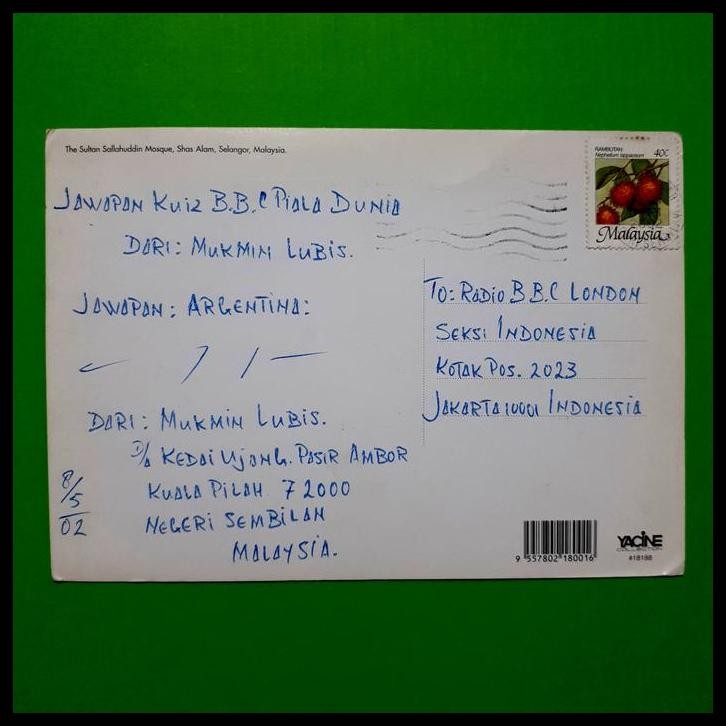 The Sultan Sallahuddin Mosque, Shas Alam, Selangor, Malaysia.
RAMBUTAN
Nephelium lappaceum
40c
Malaysia
JAWAPAN KUIZ B.B.C PIALA DUNIA
DARI: MUKMIN LUBIS.
JAWAPAN: ARGENTINA:
TO: RADIO B.B.C LONDON
SEKSI INDONESIA
KOTAK POS. 2023
JAKARTA 10001 INDONESIA
DARI: MUKMIN LUBIS.
D/A KEDAI UJONG. PASIR AMBOR
KUALA PILAH 72000
NEGERI SEMBILAN
MALAYSIA.
8/5/02
9 557802 180016
YACINE
COLLECTION
#18188